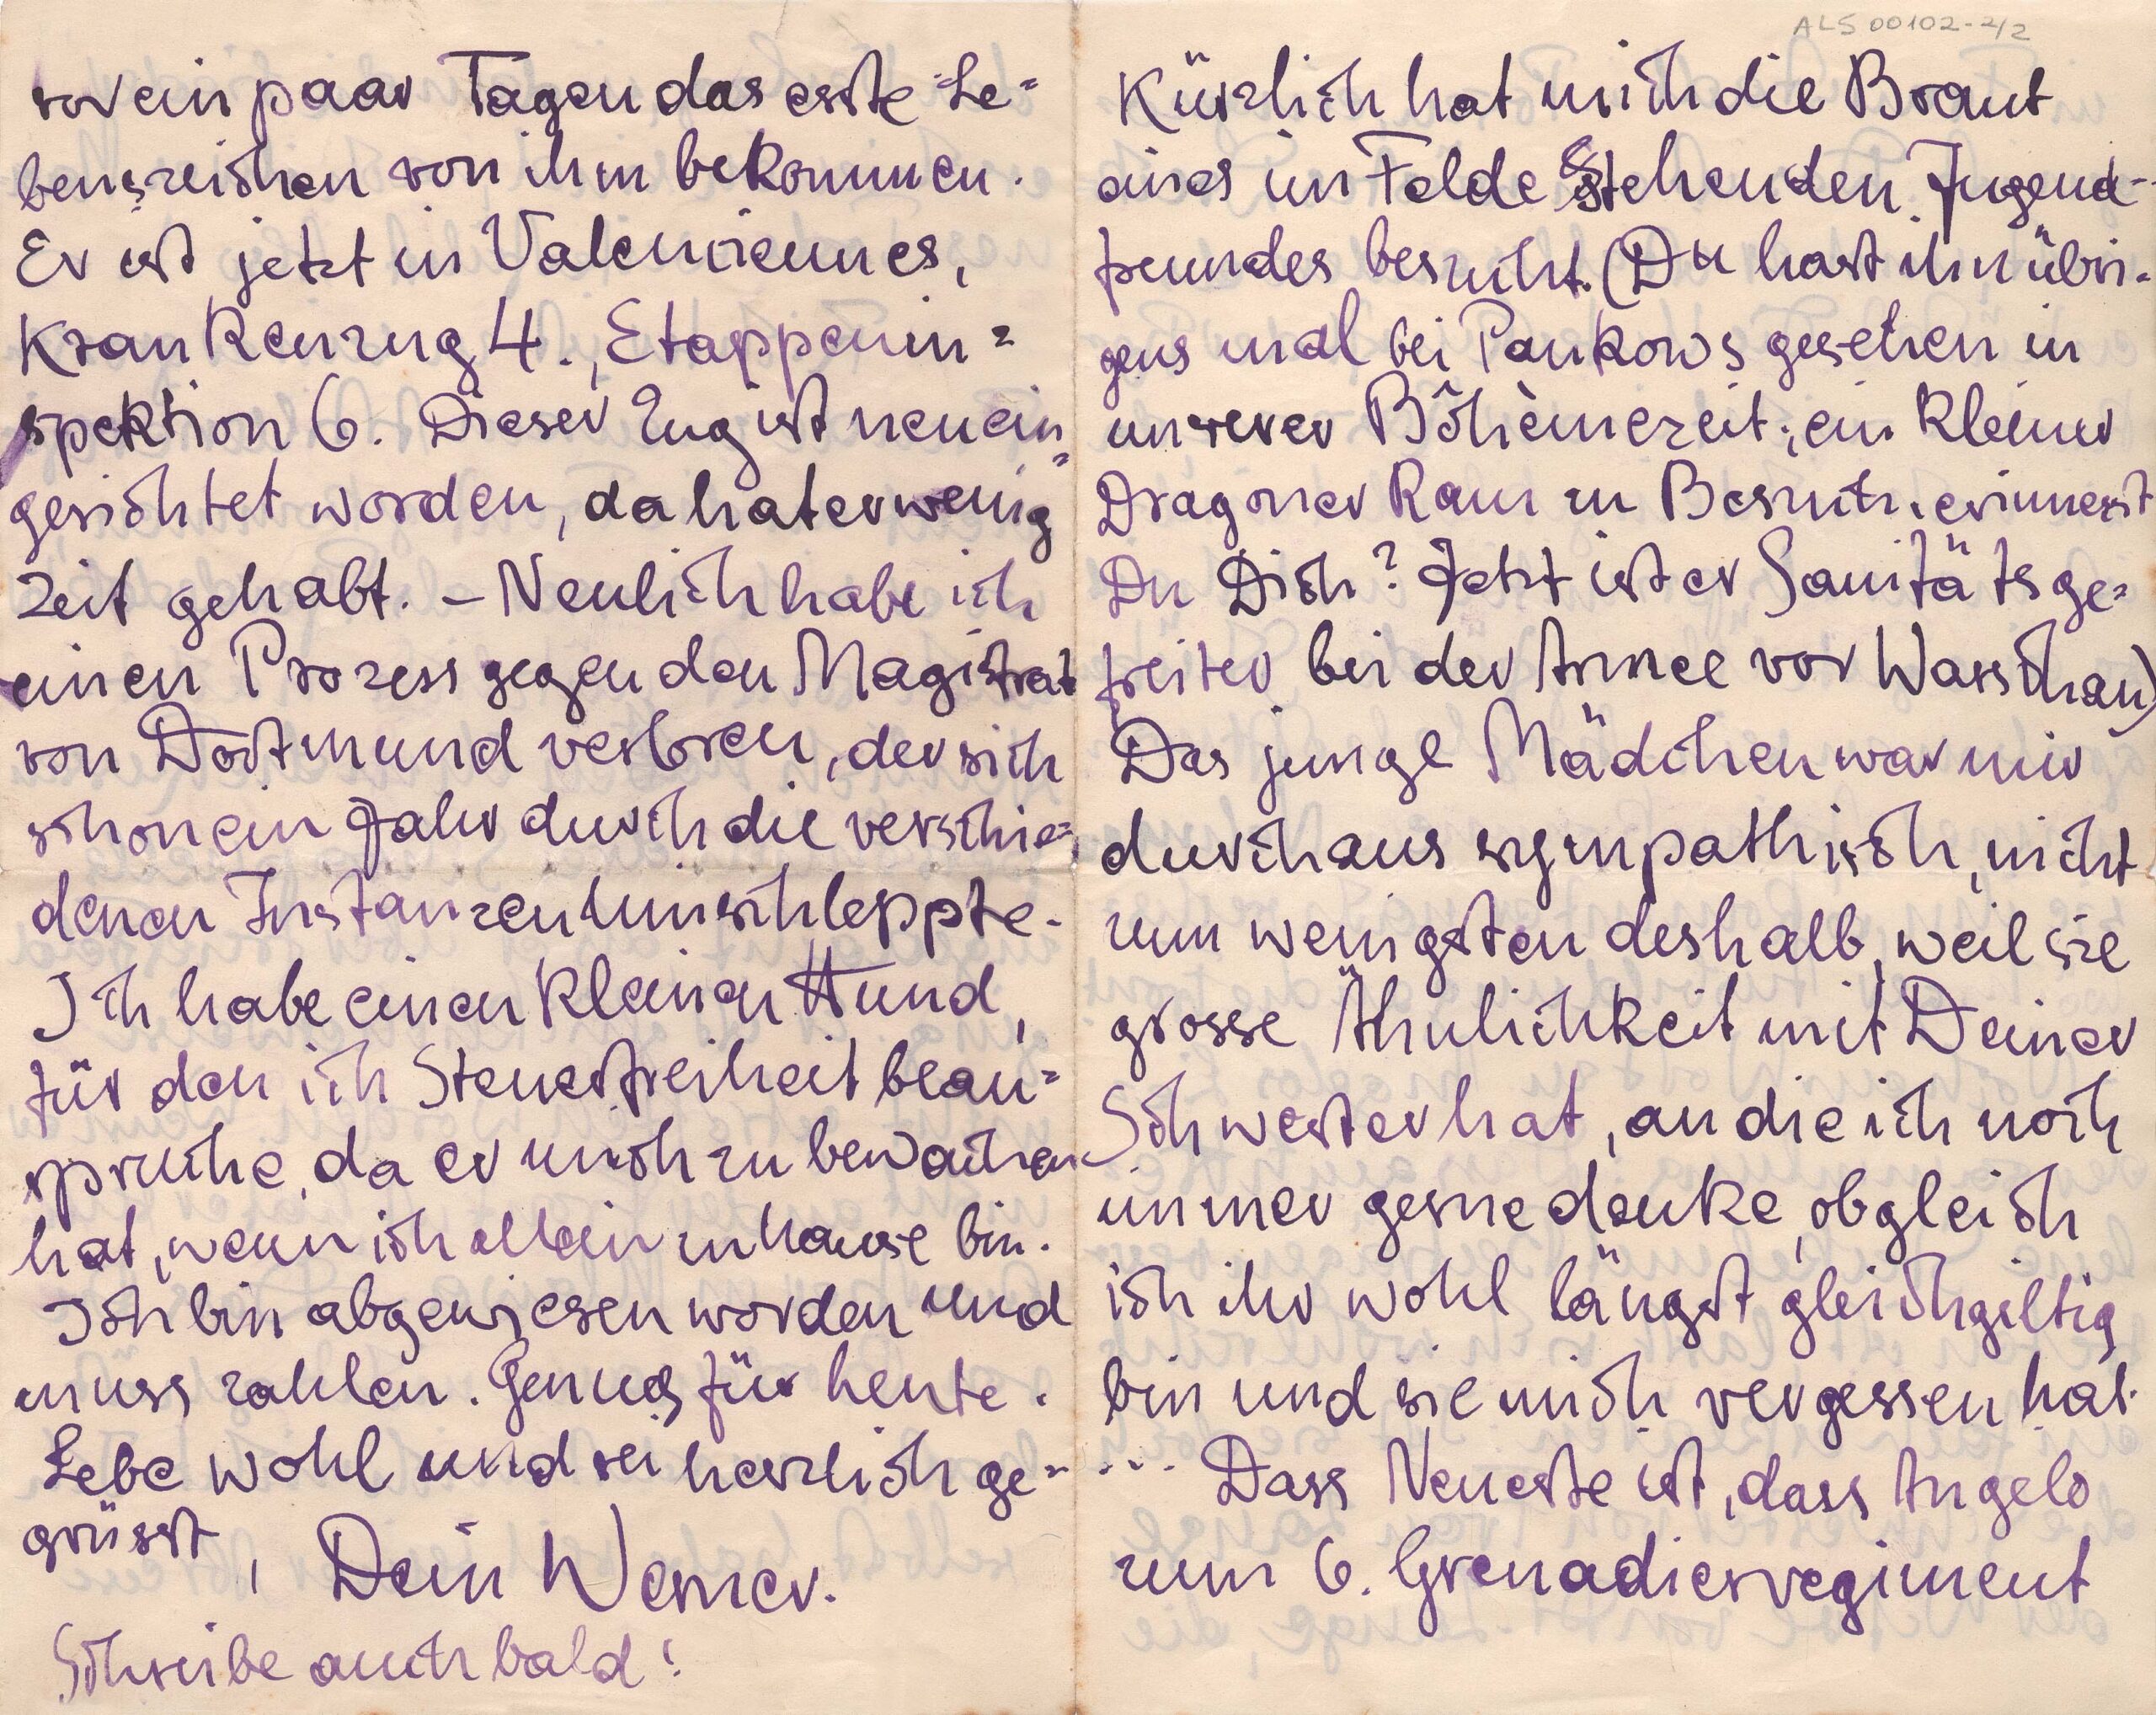 vor ein paar Tagen das erste Le=
benszeichen von ihm bekommen.
Er ist jetzt in Valenciennes,
Krankenzug 4., Etappenin=
spektion 6. Dieser Zug ist neu ein=
gerichtet worden, da hat er wenig
Zeit gehabt. – Neulich habe ich
einen Prozess gegen den Magistrat
von Dortmund verloren, der sich
schon ein Jahr durch die verschie=
denen Instanzen hinschleppte.
Ich habe einen kleinen Hund,
für den ich Steuerfreiheit bean=
spruche, da er mich zu bewachen
hat, wenn ich allein zu hause bin.
Ich bin abgewiesen worden und
muss zahlen. Genug für heute.
Lebe wohl und sei herzlich ge=
grüsst, Dein Werner.
Schreibe auch bald!
ALS 00102-2/2
Kürzlich hat mich die Braut
eines im Felde stehenden Jugend-
freundes besucht. (Du hast ihn übri-
gens mal bei Pankows gesehen in
unserer Bôhèmezeit; ein kleiner
Dragoner kam zu Besuch, erinnerst
Du Dich? Jetzt ist er Sanitätsge=
freiter bei der Armee vor Warschau)
Das junge Mädchen war mir
durchaus sympathisch, nicht
zum wenigsten deshalb, weil sie
grosse Ähnlichkeit mit Deiner
Schwester hat, an die ich noch
immer gerne denke, obgleich
ich ihr wohl längst gleichgiltig
bin und sie mich vergessen hat.
... Dass Neueste ist, dass Angelo
zum 6. Grenadierregiment